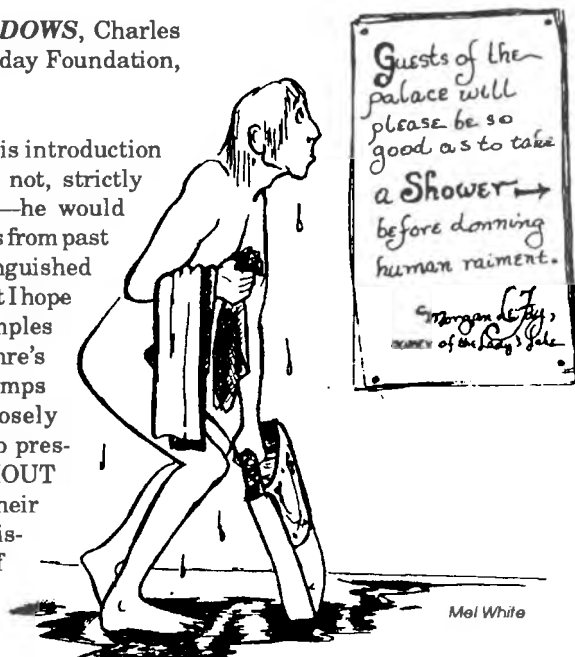 DOWS, Charles
day Foundation,
is introduction
not, strictly
—he would
s from past
nguished
t I hope
mples
nre's
mps
osely
o pres-
HOUT
heir
is-
f
Guests of the
palace will
please be so
good as to take
a Shower →
before donning
human raiment.
Morgan Le Fay,
of the Lady's Isle
Mel White